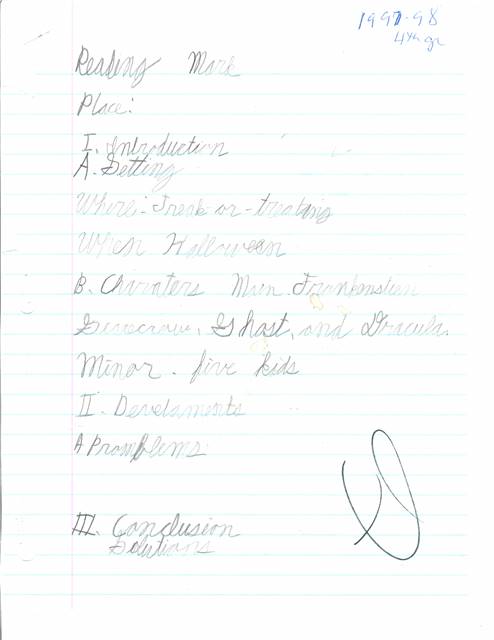 1997-98
4th gr
Reading Mark
Place:
I. Introduction
A. Setting
Where - Treak or - treating
When Halloween
B. Charaters Main. Frankenstein
Scarecrow, Ghost, and Dracula.
Minor - five kids
II. Develaments
A Promblems
III. Conclusion
Solutions